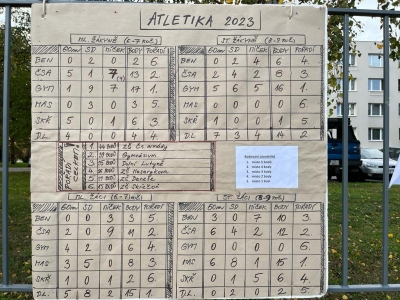 ATLETIKA 2023
ML. ŽÁKYNĚ (6-7 roč.)
60m SD MÍČEK BODY POŘADÍ
BEN 0 2 0 2 6
ČSA 5 1 7 13 2
GYM 1 9 7 17 1.
MAS 0 3 0 3 5.
SKŘ 5 1 0 6 3.
DL. 4 0 0 4 4.
ST. ŽÁKYNĚ (8-9 roč.)
60m SD MÍČEK BODY POŘADÍ
BEN 0 2 4 6 4.
ČSA 2 4 2 8 3.
GYM 5 6 5 16 1.
MAS 0 0 0 0 6.
SKŘ 0 1 0 1 5.
DL. 7 3 4 14 2.
POŘADÍ CELKEM
1. 44 BODŮ ZŠ Čs. armády
2. Gymnázium
3. 35 BODŮ Dolní Lutyně
4. ZŠ Masarykova
5. ZŠ Benešova
6. ZŠ Skřečoň
ML. ŽÁCI (6-7 roč.)
60m SD MÍČEK BODY POŘADÍ
BEN 0 0 3 3 5.
ČSA 2 0 9 11 2.
GYM 4 2 0 6 4.
MAS 3 5 0 8 3.
SKŘ 1 0 1 2 6.
DL. 5 8 2 15 1.
ST. ŽÁCI (8-9 roč.)
60m SD MÍČEK BODY POŘADÍ
BEN 3 0 7 10 3.
ČSA 6 4 2 12 2.
GYM 0 0 0 0 6.
MAS 6 8 1 15 1.
SKŘ 0 1 5 6 4.
DL. 0 2 0 2 5.